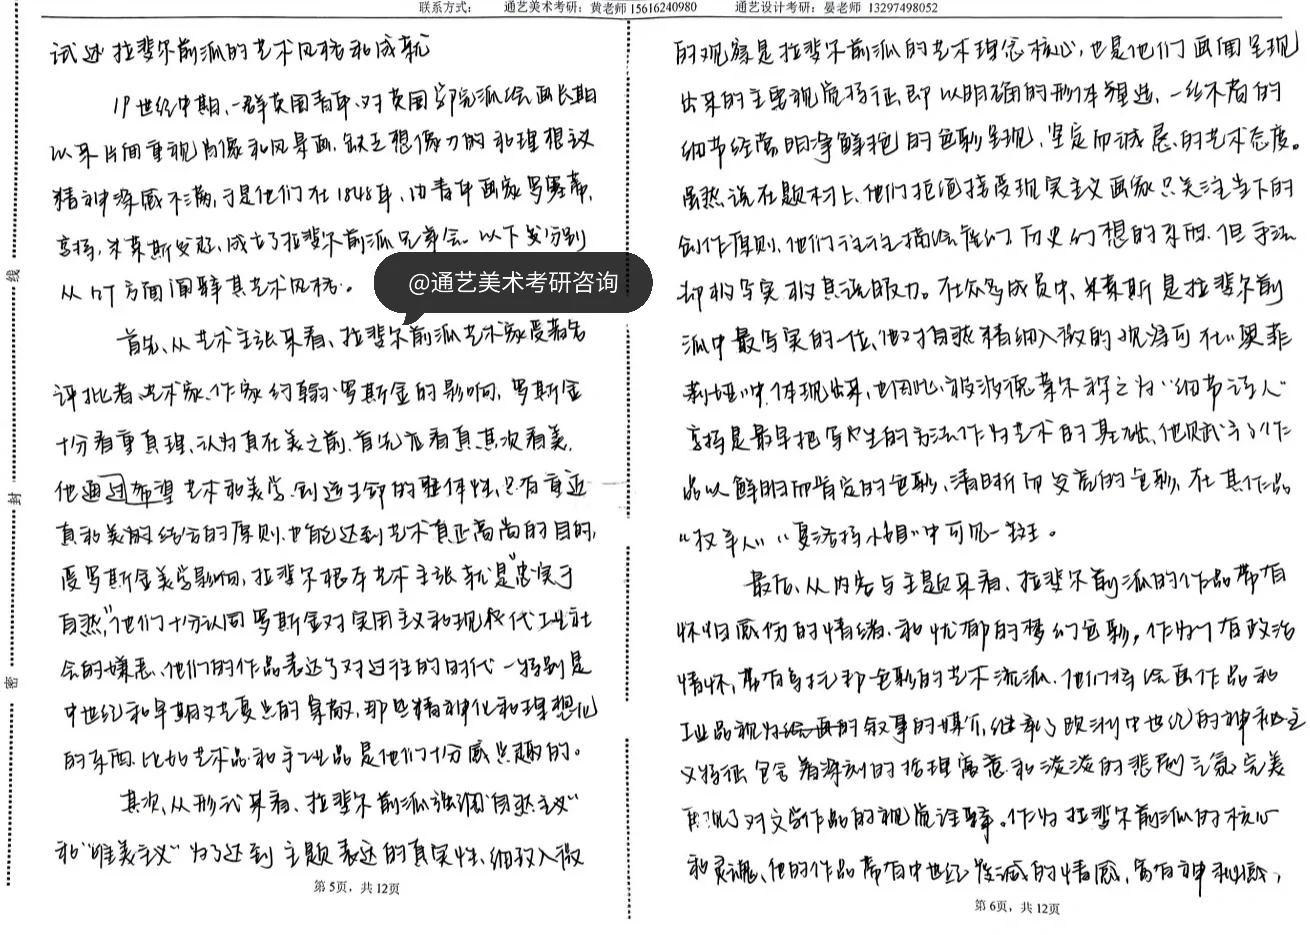 联系方式： 通艺美术考研：黄老师 15616240980 通艺设计考研：晏老师 13297498052
试述拉斐尔前派的艺术风格和成就
19世纪中期，一群英国青年，对英国学院派绘画长期
以来片面重视肖像和风景画，缺乏想像力的和理想议
精神深感不满，于是他们在1848年，由青年画家罗塞蒂，
亨特，米莱斯发起，成立了拉斐尔前派兄弟会。以下分别
从 方面阐释其艺术风格。
@通艺美术考研咨询
首先，从艺术主张来看，拉斐尔前派艺术家受著名
评批者、艺术家、作家约翰·罗斯金的影响，罗斯金
十分看重真理，认为真在美之前，首先应看真，其次看美，
他通过希望艺术和美学创造 的整体性，只有 
真和美的结合的原则，也能达到艺术真正高尚的目的，
受罗斯金美学影响，拉斐尔根本艺术主张就是“忠实于
自然”，他们十分认同罗斯金对实用主义和现代工业社
会的嫌恶，他们的作品表达了对过往的时代—特别是
中世纪和早期文艺复兴的崇敬，那些精神化和理想化
的东西，比如艺术品和手工业品是他们十分感兴趣的。
其次，从形式来看，拉斐尔前派强调“自然主义”
和“唯美主义”为了达到主题表达的真实性，细致入微
第5页，共12页
的观察是拉斐尔前派的艺术理念核心，也是他们画面呈现
出来的主要视觉特征，即以明确的形体塑造，一丝不苟的
细节经营，明净鲜艳的色彩呈现，坚定而诚恳的艺术态度。
虽然说在题材上，他们拒绝接受现实主义画家只关注当下的
创作原则，他们往往描绘 历史幻想的东西，但手法
却极写实极其说服力。在众多成员中，米莱斯是拉斐尔前
派中最写实的一位，他对自然精细入微的观察可在《奥菲
莉娅》中体现出来，也因此，被波德莱尔称之为“细节诗人”
亨特是最早把写生的方法作为艺术的基础，他赋予了作
品以鲜明而肯定的色彩，清晰而 的色彩，在其作品
“牧羊人”“ ”中可见一斑。
最后，从内容与主题来看，拉斐尔前派的作品带有
怀旧感伤的情绪，和忧郁的梦幻色彩，作为 有政治
情怀，带有乌托邦色彩的艺术流派，他们将绘画作品和
工业品视为绘画的叙事的媒介，继承了欧洲中世纪的神秘主
义特征，包含着深刻的哲理寓意和淡淡的悲剧气氛，完美
再现了对文学作品的视觉诠释。作为拉斐尔前派的核心
和灵魂，他的作品带有中世纪 的情感，富有神秘感，
第6页，共12页
线
封
密